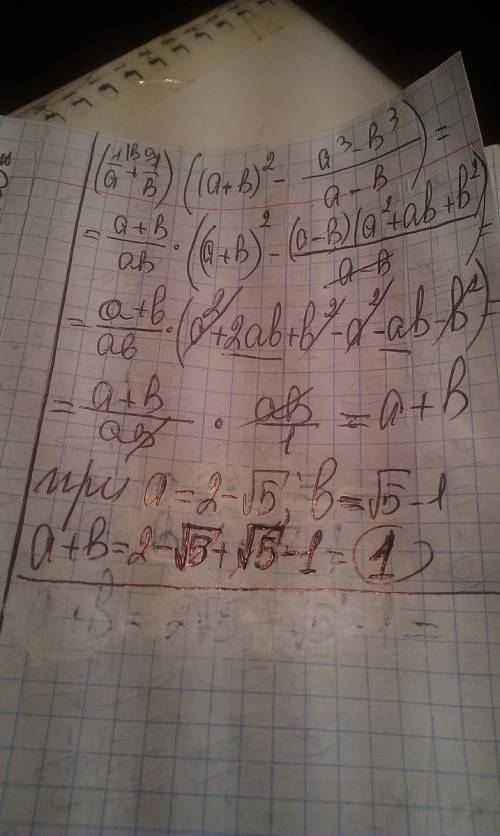 (1/a + 1/b) ((a+b)² - (a³-b³)/(a-b)) =
= (a+b)/(ab) · ((a+b)² - (a-b)(a²+ab+b²)/(a-b)) =
= (a+b)/(ab) · (a²+2ab+b²-a²-ab-b²) =
= (a+b)/(ab) · (ab)/1 = a+b
при a=2-√5; b=√5-1
a+b=2-√5+√5-1=1